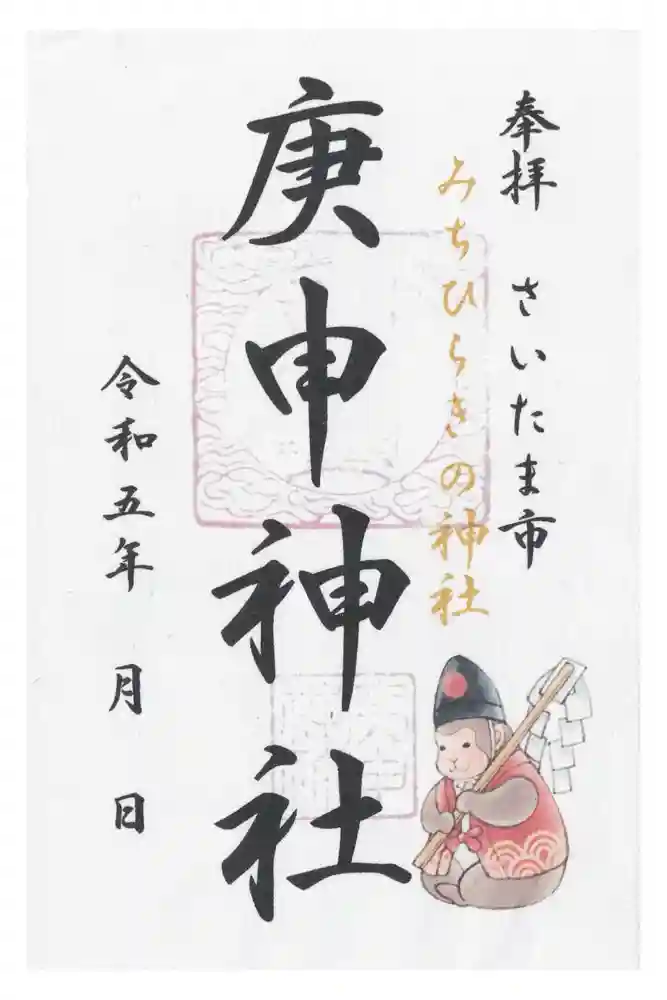 奉拝　さいたま市
みちひらきの神社
庚申神社
令和五年　月　日